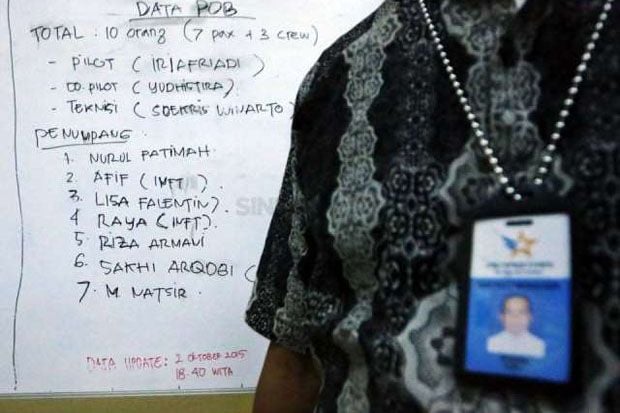 DATA POB
TOTAL : 10 orang (7 pax + 3 crew)
- PILOT ( IRIAFRIADI )
- CO.PILOT ( YUDHISTIRA )
- TEKNISI ( SOEKRIS WINARTO )
PENUMPANG .
1. NURUL FATIMAH
2. AFIF ( INFT ) .
3. LISA FALENTIN ) .
4 RAYA (INFT) .
5 RIZA ARMAVI
6. SAKHI ARQOBI (
7. M. NATSIR .
DATA UPDATE: 2 OKTOBER 2015
18.40 WITA